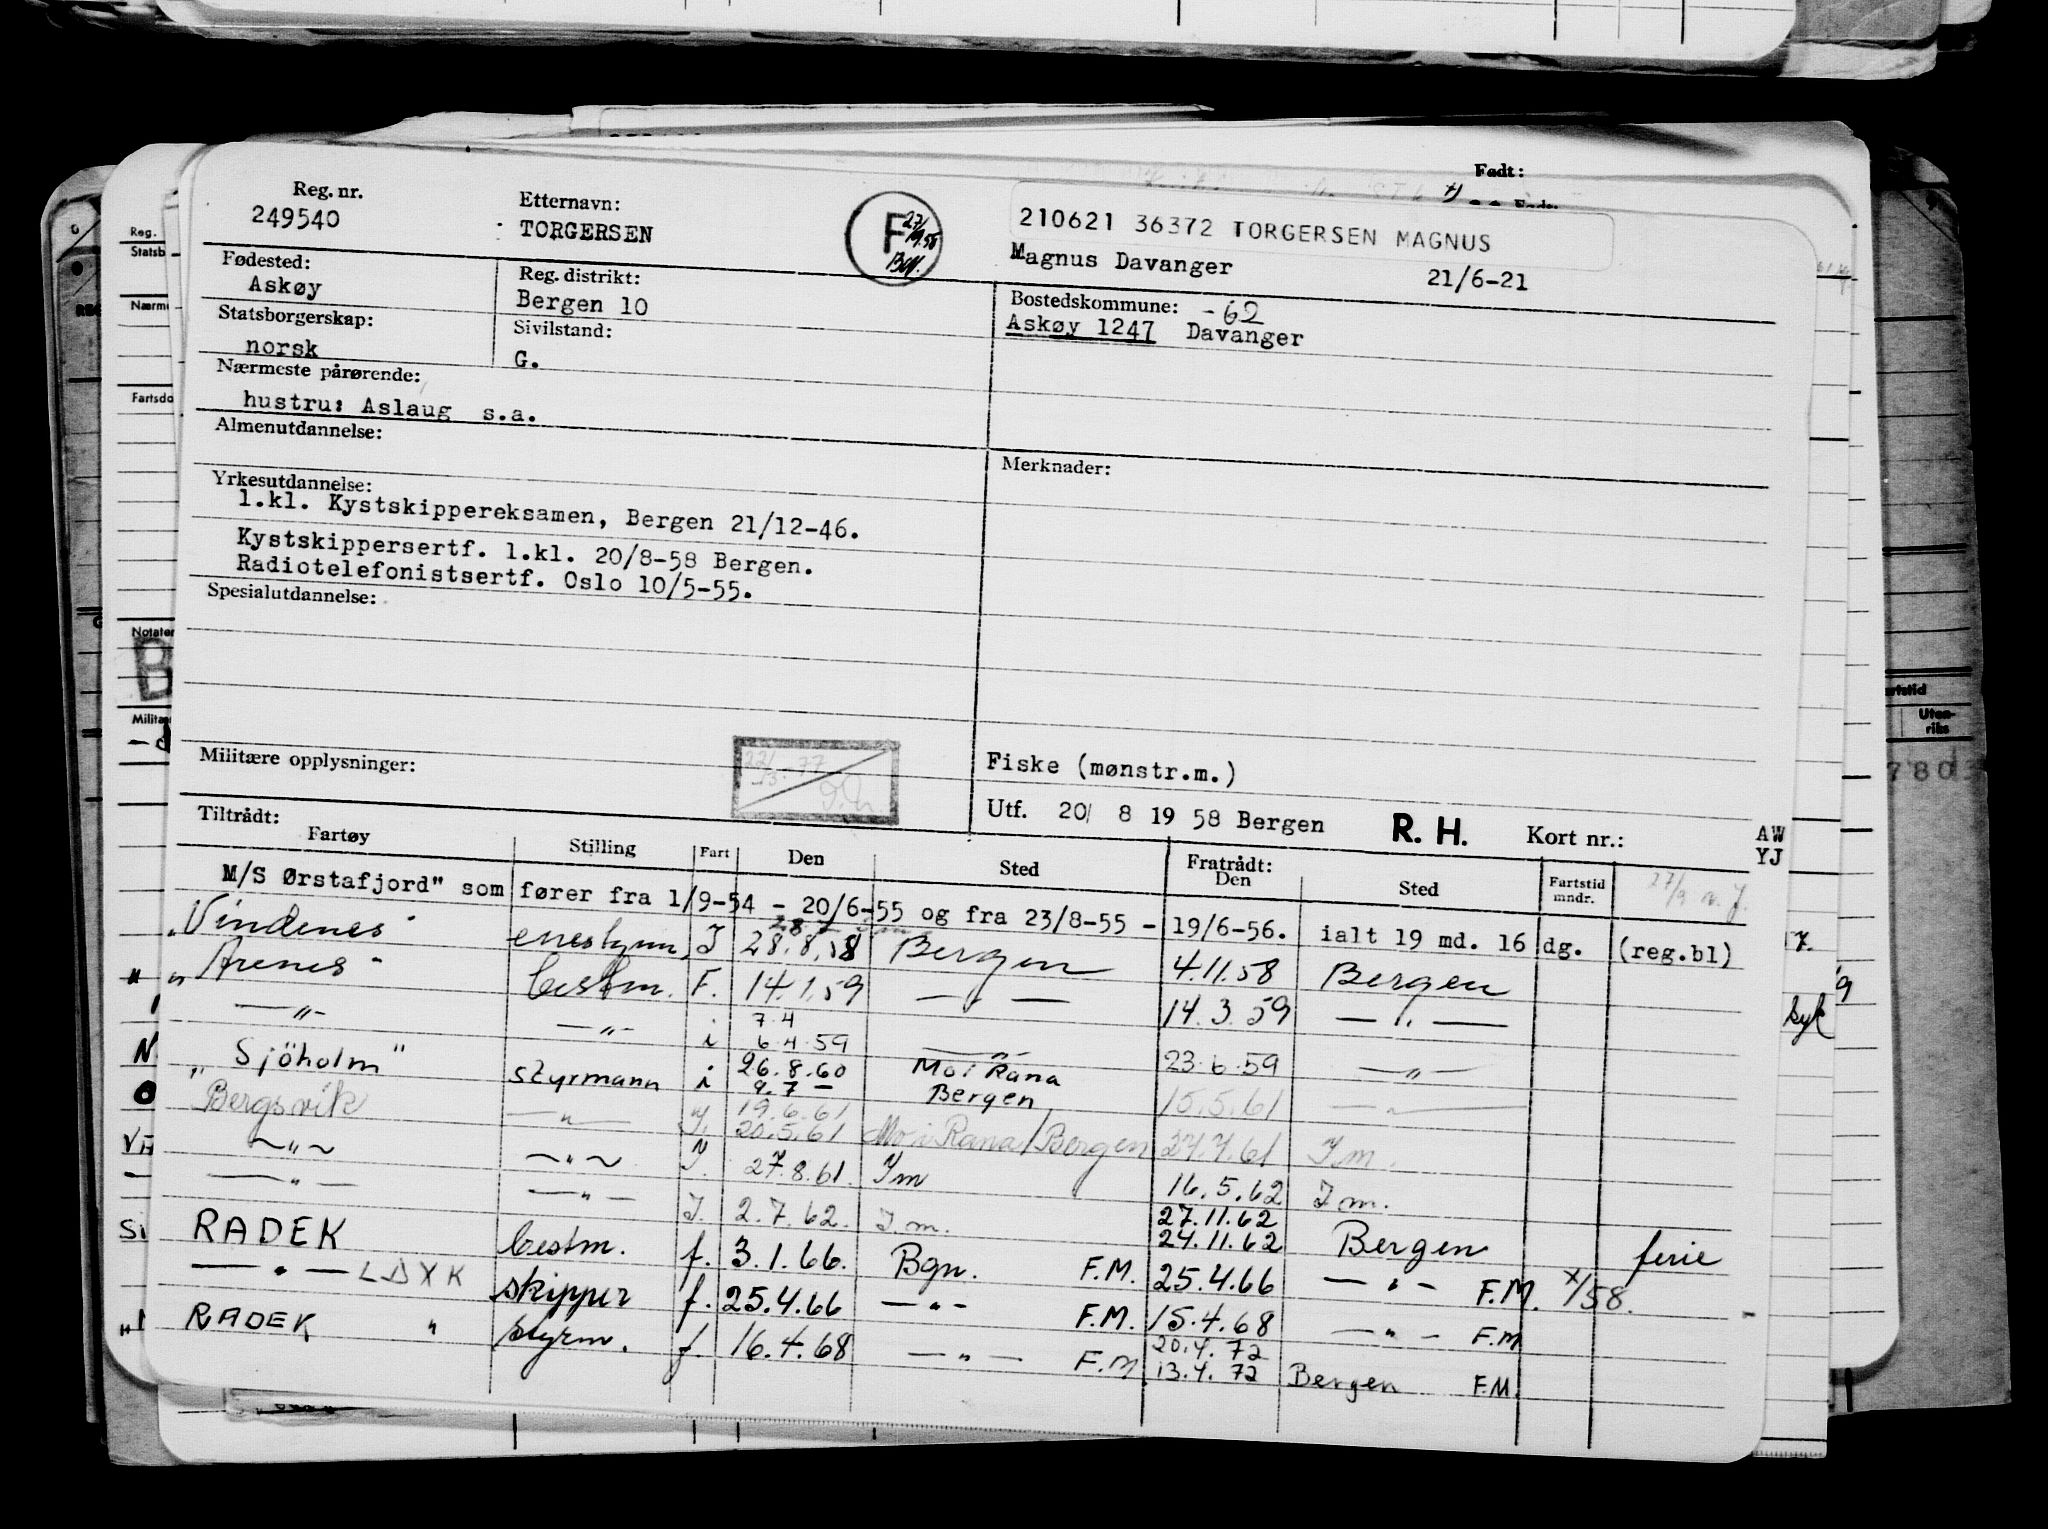 Født:
Reg. nr.
249540
Etternavn:
TORGERSEN
F
210621 36372 TORGERSEN MAGNUS
Magnus Davanger 21/6-21
Fødested:
Askøy
Reg. distrikt:
Bergen 10
Bostedskommune: -62
Askøy 1247 Davanger
Statsborgerskap:
norsk
Sivilstand:
G.
Nærmeste pårørende:
hustru: Aslaug s.a.
Almenutdannelse:
Merknader:
Yrkesutdannelse:
1.kl. Kystskippereksamen, Bergen 21/12-46.
Kystskippersertf. 1.kl. 20/8-58 Bergen.
Radiotelefonistsertf. Oslo 10/5-55.
Spesialutdannelse:
Militære opplysninger:
Fiske (mønstr.m.)
Utf. 20/ 8 19 58 Bergen R. H. Kort nr.:
AW
YJ
Tiltrådt:
Fartøy Stilling Fart Den Sted Fratrådt: Den Sted Fartstid mndr.
M/S Ørstafjord" som fører fra 1/9-54 - 20/6-55 og fra 23/8-55 - 19/6-56. ialt 19 md. 16 dg. (reg.bl)
"Vindenes" J 28.8.58 Bergen 4.11.58 Bergen
" Arenes - bestm. F. 14.1.59 — " — 14.3.59 — " —
— " — — " — i 7.4 6.4.59 — " — 23.6.59 — " —
"Sjöholm" styrmann i 26.8.60 9.7 — Mo i Rana Bergen 15.5.61 — " —
Bergsvik — " — J. 19.6.61 20.5.61 Mo i Rana/Bergen 27.7.61 Jm.
— " — — " — J. 27.8.61 Jm 16.5.62 Jm.
— " — — " — J. 2.7.62. Jm. 27.11.62 24.11.62 Bergen ferie
RADEK bestm. f. 3.1.66. Bgn. F.M. 25.4.66 — " — F.M. X/58.
— " — LDXK skipper f. 25.4.66 — " — F.M. 15.4.68 — " — F.M
RADEK " styrm. f. 16.4.68 — " — F.M 20.4.72 13.4.72 Bergen F.M.